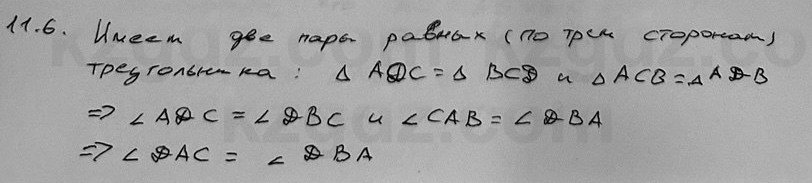 11.6. Имеет две пары равных (по трем сторонам)
треугольника: △ ADC = △ BCD и △ ACB = △ ADB
=> ∠ ADC = ∠ DBC и ∠ CAB = ∠ DBA
=> ∠ DAC = ∠ DBA